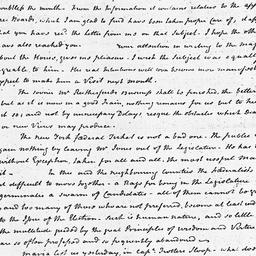 troublest the month. From the Information it contains relative to the app
Boards, which I am glad to find have been taken proper Care of, I app
that you have rec'd the letter from me on that Subject. I hope the other
have also reached you. Your attention in writing to the
about the House, gives me pleasure. I wish the Subject was equally
agreable to him. His was Intentions will soon become more manifest
expect to make him a Visit next month.
The sooner Mr Rutherfurds Business shall be finished, the better
but as it is now in a good Train, nothing remains for us but to
it so; and not by unnecessary Delays resque the obstacles which
or new Views may produce.
The New York Federal Ticket is not a bad one. The public
again nothing by leaving Mr Jones out of the Legislature. He has
without Exception, taken for all and all, the most useful
it. In this and the neighbouring Counties the Federalists
it difficult to move together. a Rage for being in the Legislature
germinate a swarm of Candidates. all of them cannot be
and too many of those who are not preferred, become at least
to the Issue of the Election. Such is human nature, and so little
the multitude guided by the great Principles of wisdom and Virtue
are so often professed and so frequently abandoned
Maria left us yesterday, in Capt. Trotters Sloop. what does